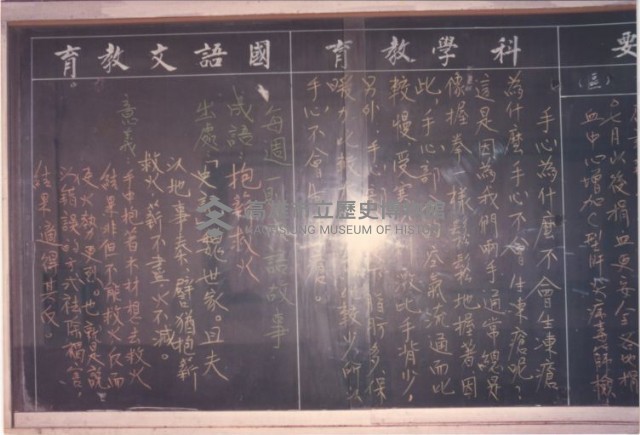 要
(三)
七月以後捐血更安全
血中心增加C型肝炎病毒評檢
科學教育
手心為什麼不會生凍瘡
為什麼手心不會生凍瘡呢?
這是因為我們兩手通常總是
像握拳一樣鬆鬆地握著因
此,手心部 空氣流通而比
較慢,受害 此手背少,
另外,手心 脂肪多,保
暖力比較 較少所以
手心不會生 。
國語文教育
每週一則成語故事
成語:抱薪救火
出處:「史記魏世家」且夫
以地事秦,譬猶抱薪
救火,薪不盡,火不滅。
意義:手中抱著木材想去救火
結果非但不能救火反而
使火 更烈。也就是說
以錯誤的方式袪除禍害,
結果適得其反。
高雄市立歷史博物館
KAOHSIUNG MUSEUM OF HISTORY